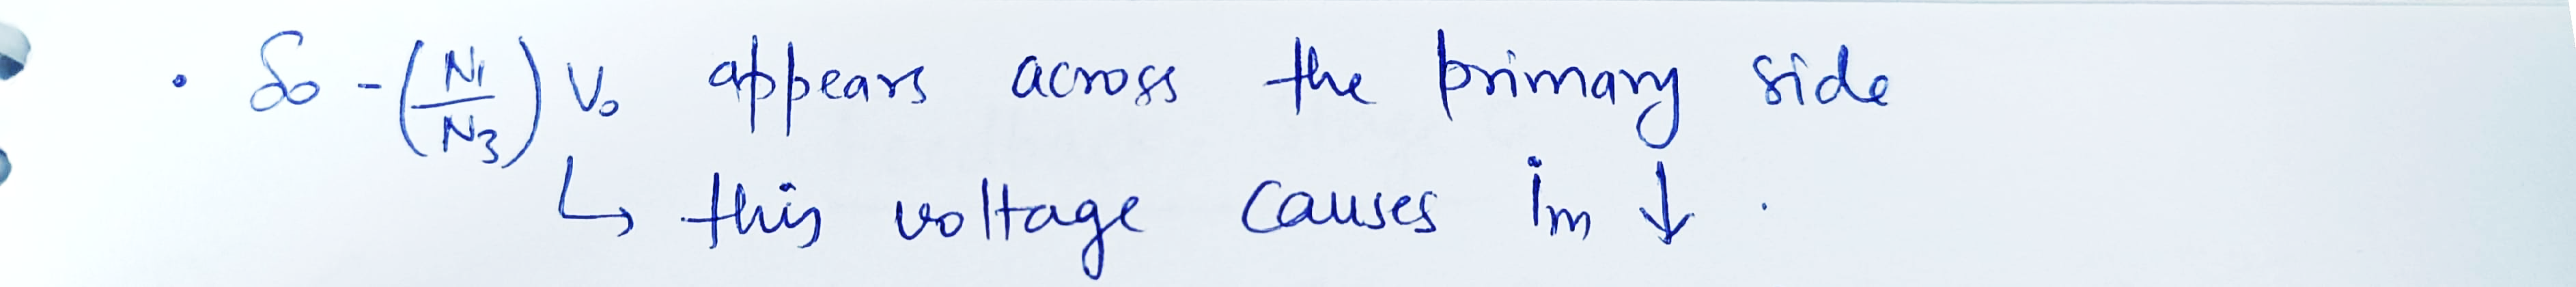 • So -(N1/N3) Vo appears across the primary side
↳ this voltage causes im ↓.